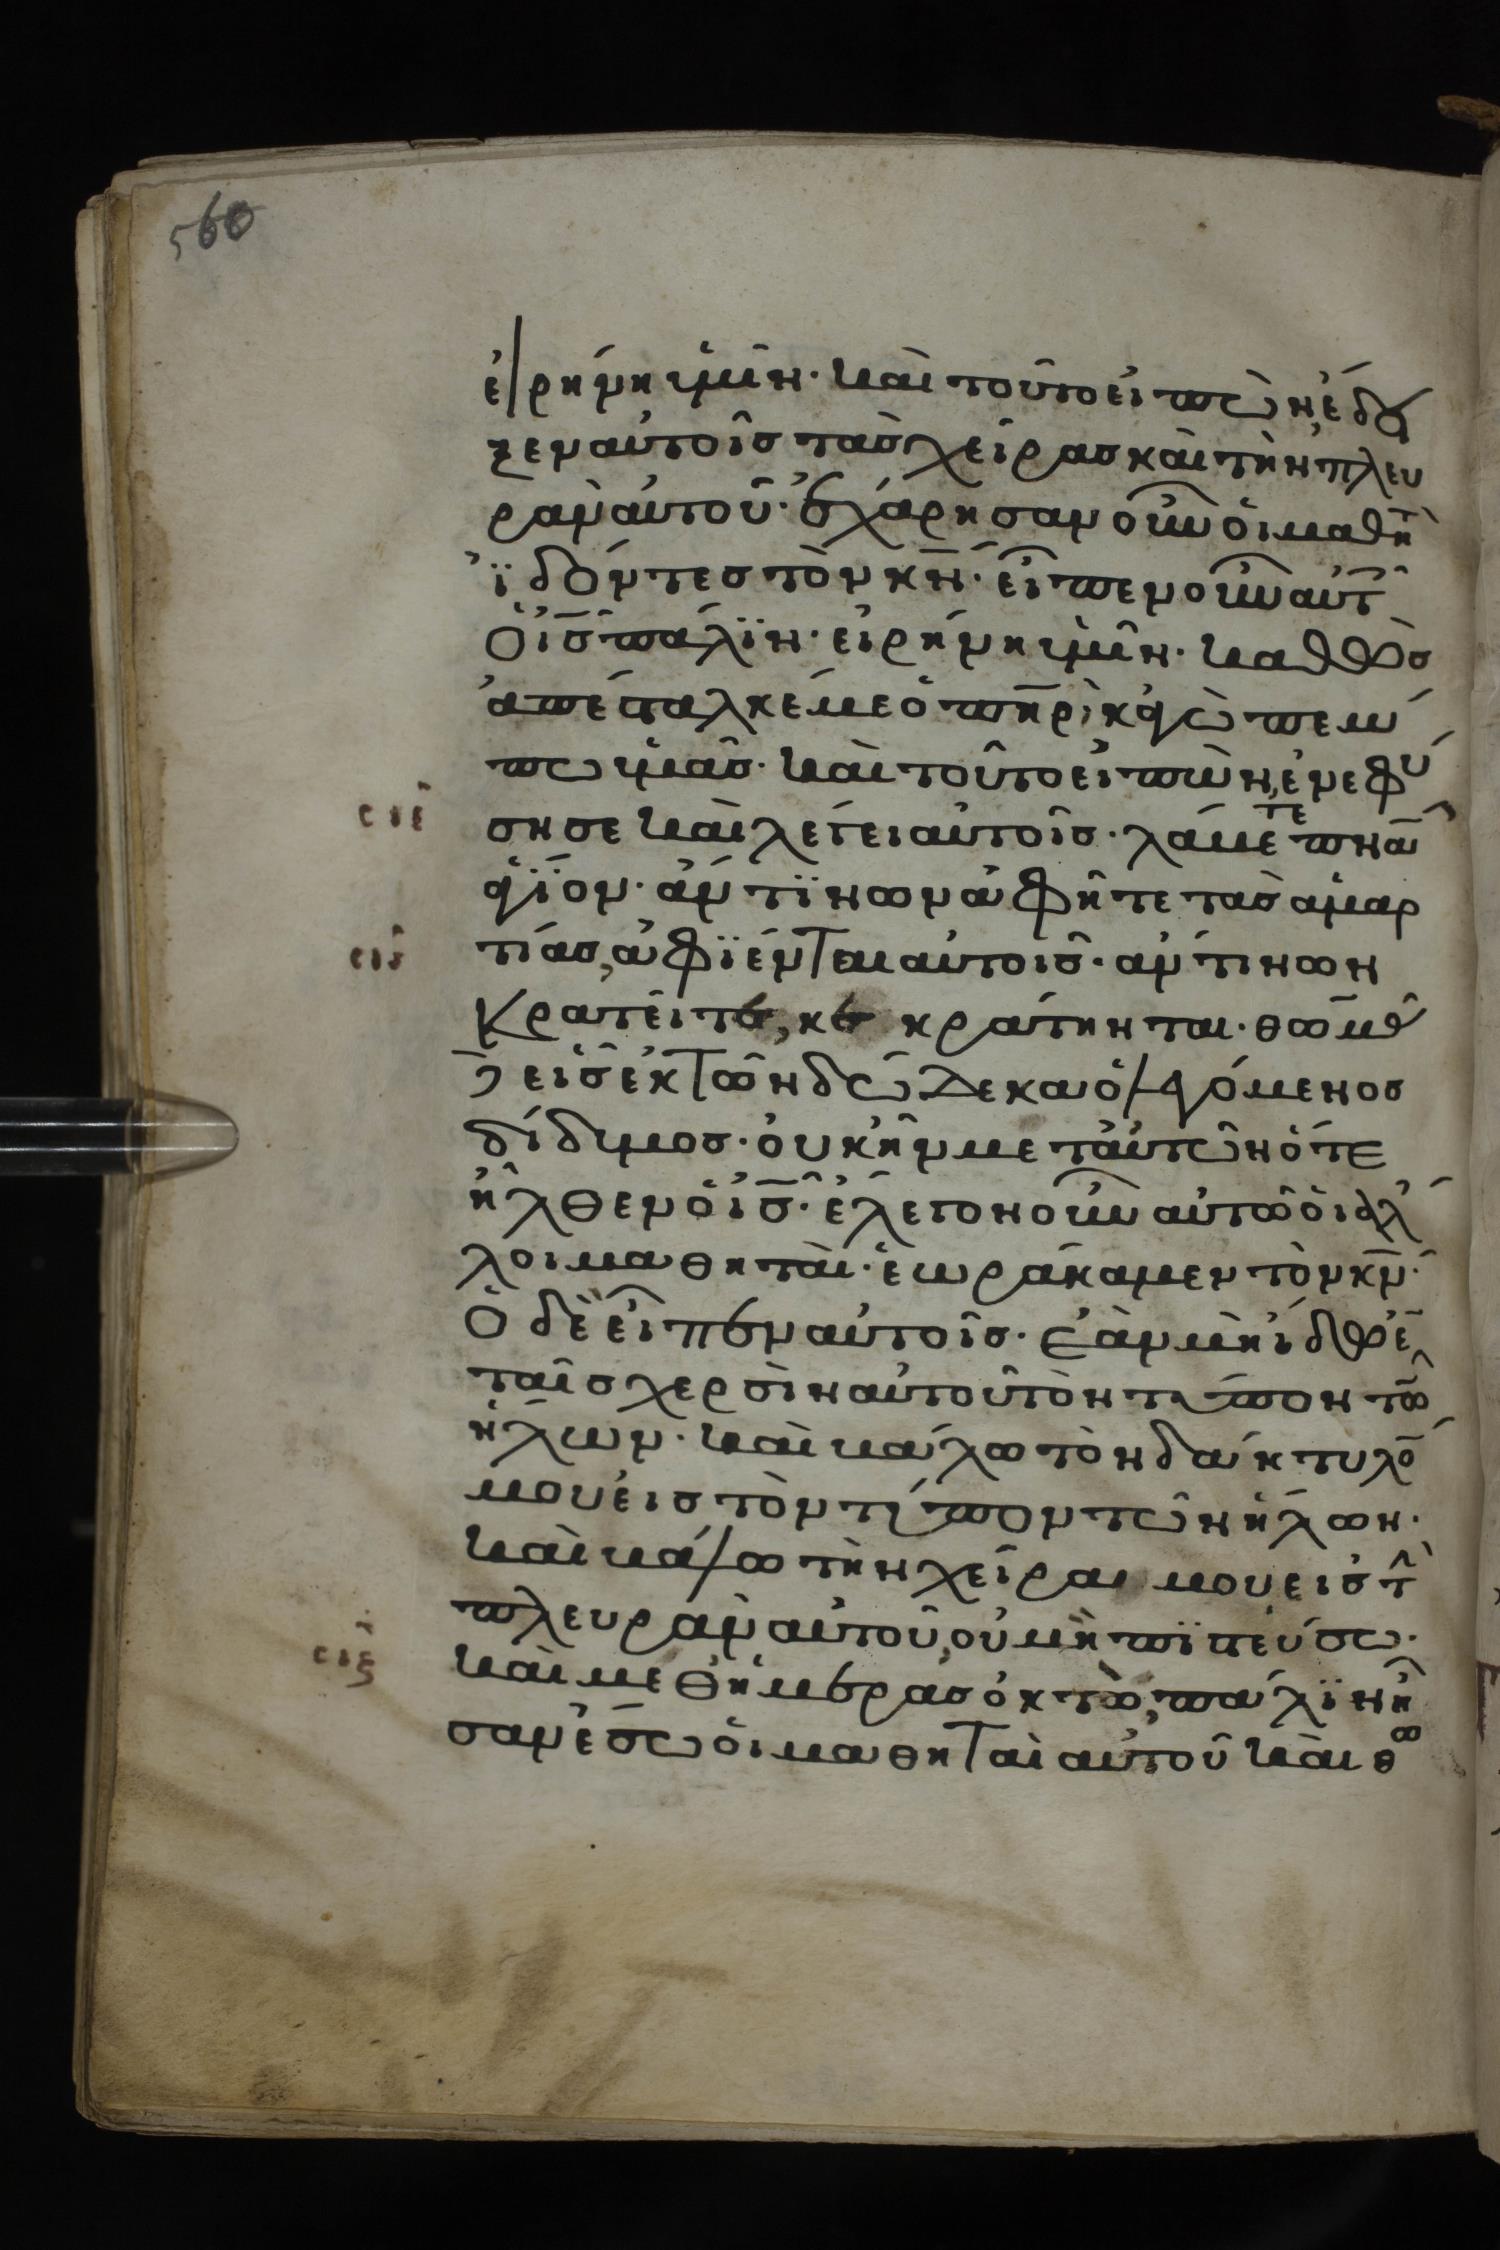 560
εἰρήνη ὑμῖν· καὶ τοῦτο εἰπὼν, ἔδει
ξεν αὐτοῖς τὰς χεῖρας καὶ τὴν πλευ
ρὰν αὐτοῦ· ἐχάρησαν οὖν ὁι μαθητ
ἰδόντες τὸν κν̄· εἶπεν οὖν αὐτ
ὁ ις̄ πάλϊν· εἰρήνη ὑμῖν· καθὼς
ἀπέσταλκέ με ὁ πηρ̄, κἀγὼ πέμ
πω ὑμᾶς· καὶ τοῦτο εἰπὼν, ἐνεφύ
σιε
σησε καὶ λέγει αὐτοῖς· λάβετε πνᾱ
ἅγϊον· ἄν τϊνων ἀφῆτε τὰς ἁμαρ
σις
τίας, ἀφΐενται αὐτοῖς· ἄν τινων
κρατεῖτε, κεκράτηνται· θωμᾶ
ς εἷς ἐκ τῶν δώδεκα ὁ λεγόμενος
δίδυμος· οὐκ ἦν μετ αὐτῶν ὅτε
ἦλθεν ὁ ις̄· ἔλεγον οὖν αὐτῶ ὁι ἄλ
λοι μαθηταὶ· ἑωράκαμεν τὸν κν̄·
Ὁ δὲ εἶπεν αὐτοῖς· ἐὰν μὴ ἴδω ἐ
ταῖς χερσὶν αὐτοῦ τὸν τύπον τῶ
ἥλων· καὶ βάλω τὸν δάκτυλό
μου εἰς τὸν τύπον τῶν ἥλων·
καὶ βάλω τὴν χεῖρα μου εἰς τ
πλευρὰν αὐτοῦ, οὐ μὴ πϊστεύσω·
σιζ
καὶ μεθ ἡμέρας ὀκτὼ, πάλϊν ἦ
σαν ἔσω ὁι μαθηταὶ αὐτοῦ καὶ θω